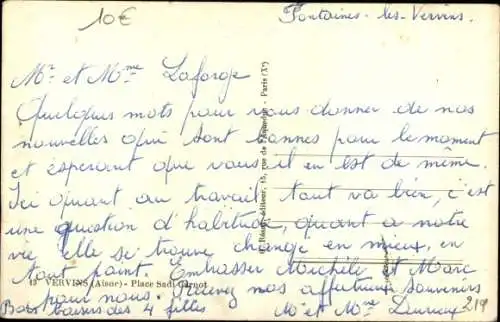 10€
Fontaines-les-Vervins.
Mr et Mme Laforge
Quelques mots pour vous donner de nos
nouvelles qui sont bonnes pour le moment
et espérant que vous il en est de même.
Ici quant au travail tout va bien, c'est
une question d'habitude, quant a notre
vie elle se trouve changé en mieux, en
tout point. Embrasser Michèle et Marc
13 VERVINS (Aisne) - Place Sadi-Carnot
pour nous. Recevez nos affectueux souvenirs
Bons baisers des 4 filles Mr et Mme
219
éditeur, 15, rue de - Paris (Xe)